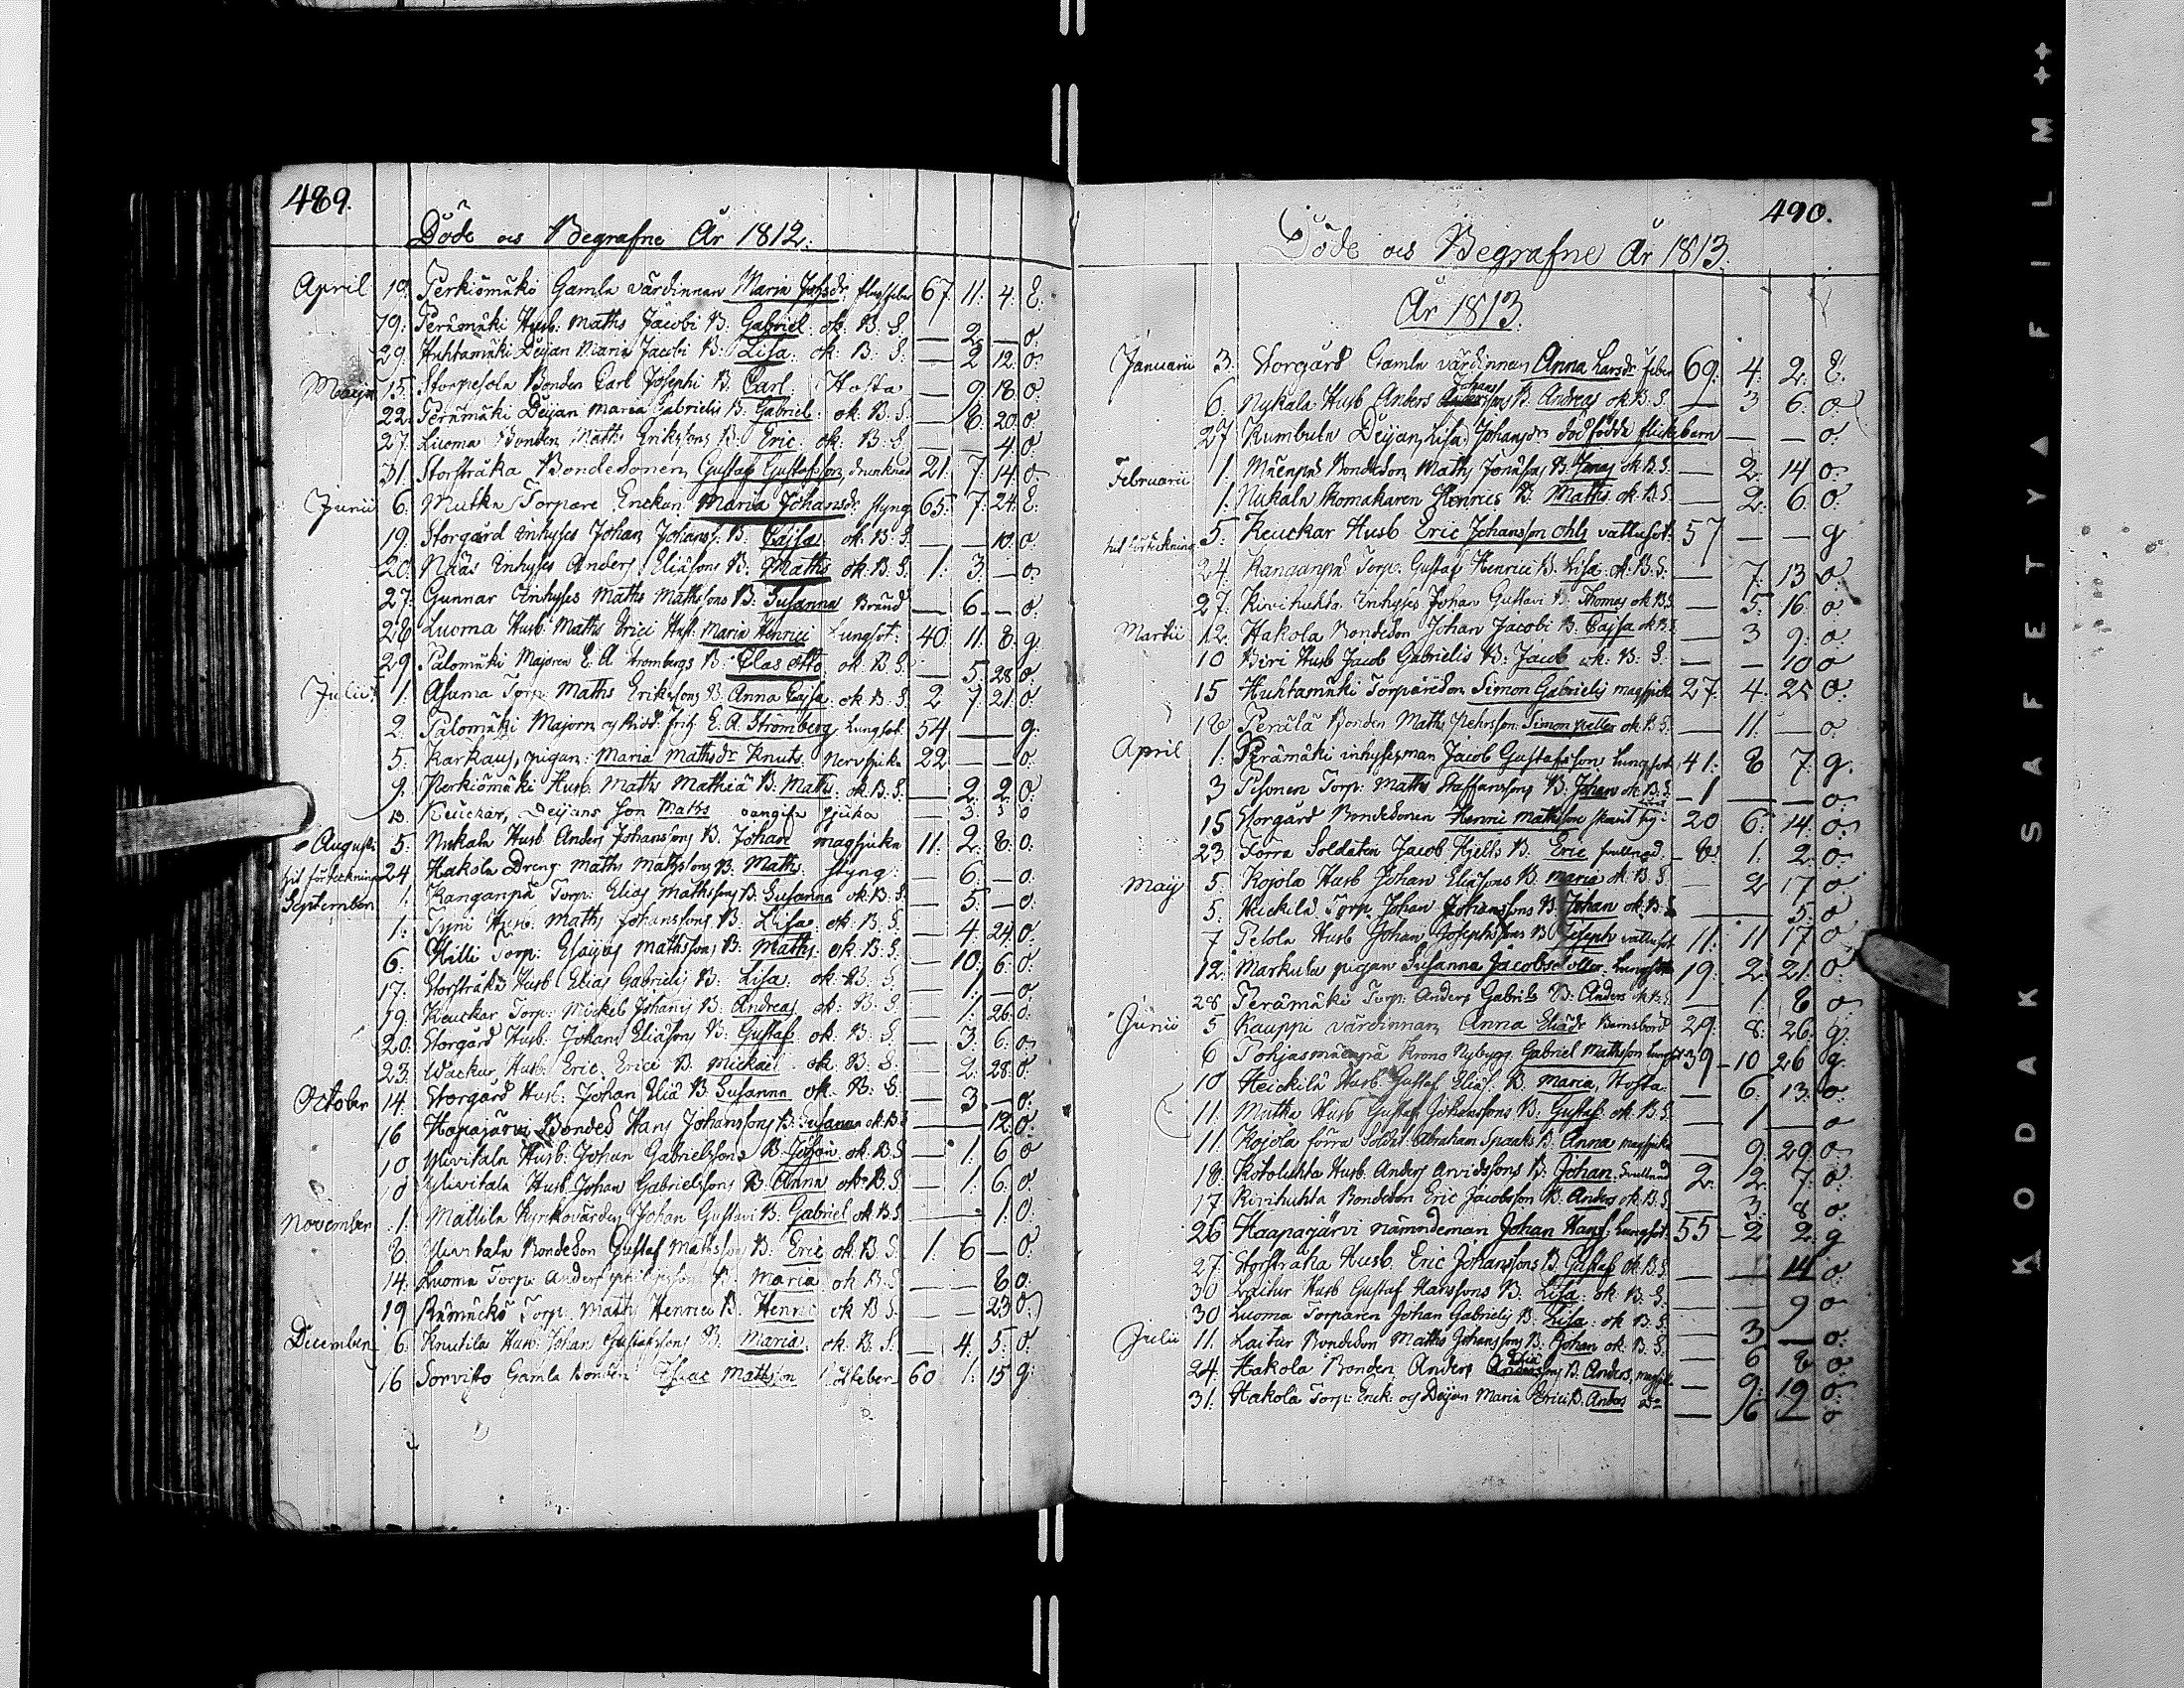 489.
Döde och Begrafne År 1812.
April 19. Perkiömäki Gamla värdinnan Maria Johsdr 67. 11. 4. E.
19: Perämäki Husb: Maths Jacobi B: Gabriel. ok: B: S: — 2. — o.
29. Huhtamäki Deijan Maria Jacobi B: Lisa. ok: B: S: — 2 12. o.
Maijus 15. Storpesola Bonden Carl Josephi B. Carl. Hosta — 9 18. o.
22. Perämäki Deijan Maria Gabrielis B: Gabriel. ok: B: S. — 8. 20. o.
27. Luoma Bonden Maths Erikssons B: Eric. ok: B: S — — 4. o.
31. Storstråka Bondesonen Gustaf Gustafsson, drunknad 21. 7. 14. o.
Junii 6. Mutka Torpare Enckan Maria Johansdr styng 65. 7. 24. E.
19. Storgård inhyses Johan Johanss. B: Cajsa. ok. B: S — — 10. o.
20. Näás Inhyses Anders Eliäsons B: Maths ok: B: S. 1. 3. — o.
27. Gunnar Inhyses Maths Mathssons B: Susanna Bränd — 6 — o.
28 Luoma Husb: Maths Erici Hust: Maria Henrici Lungsot: 40. 11. 8. g.
29. Palomäki Majoren E. A. Strombergs B: Clas Otto. ok: B: S: — 5. 28. o.
Julii 1. Asuma Torp: Maths Erikssons B: Anna Cajsa. ok: B: S 2 7. 21. o.
2. Palomäki Majorn och Ridd: E. A. Strömberg Lungsot. 54 — — g.
5. Karkaus, pigan: Maria Mathsdr Knuts. Nervsjuka 22 — — o.
9. Perkiömäki Husb. Maths Mathiä B: Maths. ok. B: S: — 2. 2. o.
13. Keuckar, Deijans son Maths sjuka — 3. 3 o
Augusti 5. Nukala Husb Anders Johanssons B. Johan magsjuka 11. 2. 8. o.
til förteckning 24 Hakola Dreng Maths Mathssons B: Maths. styng: — 6. — o.
September 1. Kanganpä Torp: Elias Mathssons B: Susanna ok: B: S — 5. — o.
1. Tyni Husb: Maths Johanssons B: Lisa. ok: B: S. — 4. 24. o.
6. Hilli Torp: Esajas Mathssons B: Maths. ok: B: S. — 10. 6. o.
17. Storstråka Husb: Elias Gabrielis B: Lisa. ok: B: S. — 1. — o.
19. Keuckar Torp: Mickel Johanis B: Andreas. ok: B: S — 1. 26. o.
20. Storgård Husb: Johans Eliäsons B: Gustaf. ok: B: S. — 3. 6. o.
23. Wackur Husb: Eric Erici B. Mickael. ok: B: S: — 2. 28. o.
October 14. Storgård Husb: Johan Eliä B: Susanna ok: B: S: — 3. — o.
16 Hapajärvi Bondes Hans Johanssons B: Susanna ok: B: S — — 12. o.
10 Ylivitala Husb: Johan Gabrielssons B: Johan. ok: B: S — 1. 6 o
10 Ylivitala Husb Johan Gabrielssons B: Anna ok: B: S — 1. 6. o.
November 1. Mattila Kyrkovärden Johan Gustavi B: Gabriel ok: B: S — — 1. o.
8. Ylivitala Bondeson Gustaf Mathssons B: Eric ok: B: S. 1. 6 — o.
14. Luoma Torp: Anders Philipssons B. Maria. ok B: S — — 8. o.
19 Torp: Maths Henrici B: Henric ok B S. — — 23. o.
December 6. Knutila Husb: Johan Gustafssons B: Maria. ok: B: S. — 4. 5. o.
16 Sorvisto Gamla Bonden Isaac Mathsson 60 1. 15 g.
490.
Döde och Begrafne År 1813.
År 1813.
Januarii 3. Storgård Gamla värdinnan Anna Larsdr feber 69. 4. 2. E.
Johans
6. Nykala Husb Anders sons B: Andreas ok: B: S. — 3 6. o.
27 Kumbula Deijan Lisa Johansdr död födda flickebarn — — o.
Februarii 1. Mäenpä Bondeson Maths Jonässons B. Jonas ok: B. S. — 2. 14 o.
1. Nukala Skomakaren Henrics B. Maths. ok: B: S. — 2. 6. o.
til förteckning 5. Keuckar Husb Eric Johansson Ohls vattusot. 57 — — g
24. Kanganpä Torp: Gustaf Henrici B: Lisa. ok: B: S: — 7. 13. o.
27. Kivihuhta Inhyses Johan Gustavi B: Thomas ok B: S. — 5. 16. o.
Martii 12. Hakola Bondeson Johan Jacobi B: Cajsa ok: B: S. — 3 9. o.
10 Biri Husb Jacob Gabrielis B: Jacob ok: B: S. — — 10 o
15 Huhtamäki Torparedon Simon Gabrielis magsjuka 27. 4. 25 o.
18 Perälä Bonden Maths Pehrsson: Simon Petter ok: B: S. — 11. — o.
April 1. Perämäki inhyses man Jacob Gustafsson Lungsot 41. 8 7. g.
3 Pesonen Torp: Maths Staffanssons B: Johan ok: B: S. — 1 — — o.
15 Storgård Bondesonen Henric Mathsson 20 6. 14. o.
23 Torra Soldaten Jacob Hjelts B. Eric svullnad. — 8 1. 2. o.
Maij 5. Kojola Husb Johan Eliäsons B. Maria ok: B. S. — 2 17 o
5. Heickilä Torp. Johan Johanssons B: Johan ok: B: S — — 5. o
7 Pelola Husb Johan Josephssons B: Joseph vattusot. 11. 11 17 o
12. Markula pigan Susanna Jacobs dotter. Lungsot 19. 2. 21. o.
28 Perämäki Torp: Anders Gabriels B: Anders ok B: S. — 1. 8 o.
Junii 5 Kauppi värdinnan Anna Eliädr Barnsbörd 29. 8: 26. g.
6 Pohjasmäenpä Krono Nybygg. Gabriel Mathsson Lungsot 39 — 10 26 g.
10 Heickilä Husb Gustaf Eliäs. B. Maria, Hosta. — 6. 13. o.
11. Mutka Husb Gustaf Johanssons B: Gustaf. ok: B: S — 1 — o
11. Kojola förra Soldat. Abraham Spaaks B. Anna magsjuka — 9. 29. o.
18. Kotoluhta Husb. Anders Arvidssons B: Johan. Svullnad 2. 2. 7. o.
17. Kivihuhta Bondeson Eric Jacobsson B. Anders ok: B. S. — 3. 8 o.
26 Haapajärvi nämndeman Johan Hanss. Lungsot. 55 — 2 2. g
27. Storstråka Husb. Eric Johanssons B: Gustaf ok: B: S. — — 14 o.
30 Laitur Husb Gustaf Hanssons B: Lisa: ok: B: S. — — 9 o
30 Luoma Torparen Johan Gabrielis B: Lisa: ok B: S. — 3 — o.
Julii 11. Laitur Bondeson Maths Johanssons B: Johan ok: B: S. — 6 8 o.
Eliä
24. Hakola Bonden Anders sons B: Anders, magsjuka — 9. 19 o.
31. Hakola Torp: Enck: och Deijan Maria Erici B: Anders do — 6 — o
KODAK SAFETY FILM